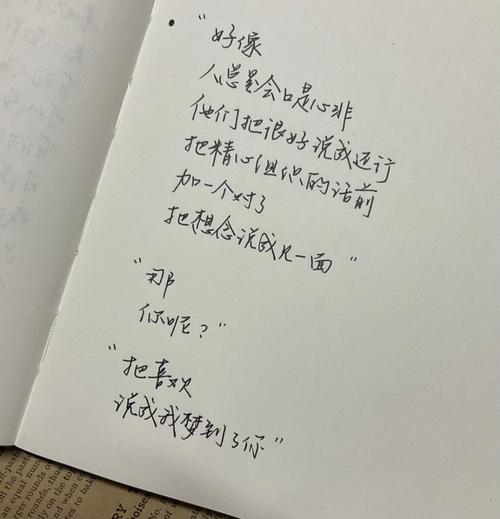 "好像
人总是会口是心非
他们把很好说成还行
把精心组织的话前
加一个对了
把想念说成见一面"
"那
你呢？"
"把喜欢
说成我梦到了你"